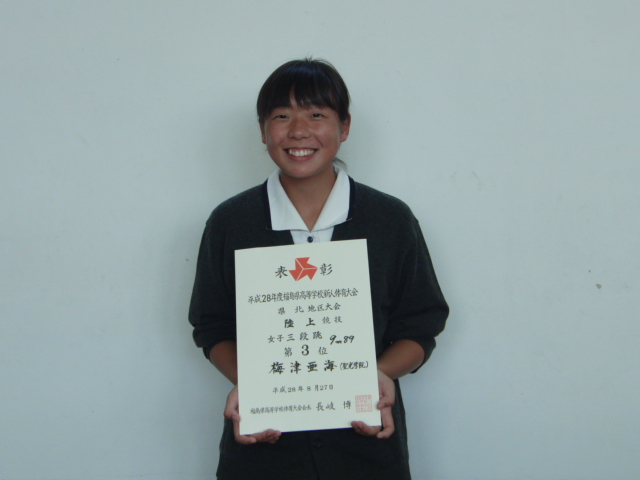 表彰
平成28年度福島県高等学校新人体育大会
県北地区大会
陸上競技
女子三段跳 9m89
第3位
梅津亜海(聖光学院)
平成28年8月27日
福島県高等学校体育大会会長 長岐 博